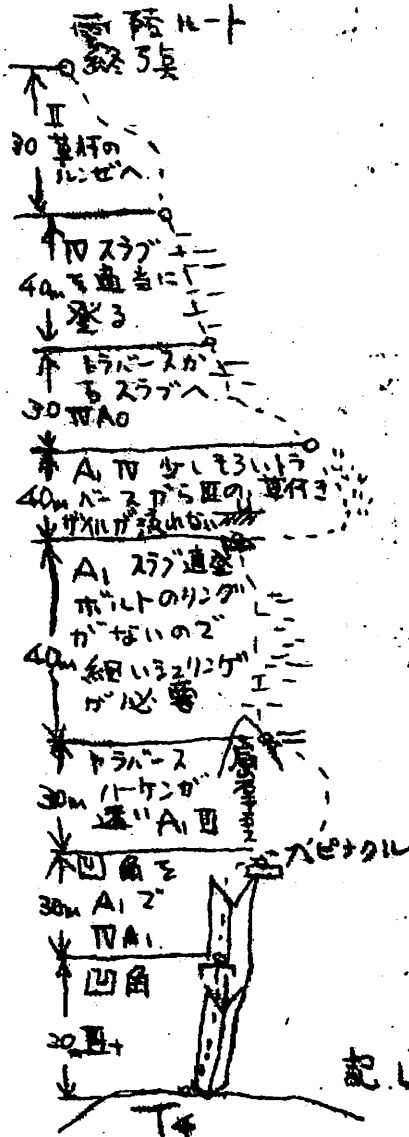 雲稜ルート
終了点
Ⅱ
30 草付の
ルンゼへ
Ⅳスラブ
40m を適当に
登る
トラバースか
らスラブへ
30 ⅣA0
A1 Ⅳ 少しもろいトラ
40m バースからⅢの草付き
ザイルが流れない
A1 スラブ直登
ボルトのリング
がないので
40m 細いシュリンゲ
が必要
トラバース
30m ハーケンが
遠い A1 Ⅲ
大ピナクル
凹角を
30m A1で
ⅣA1
凹角
20 Ⅲ+